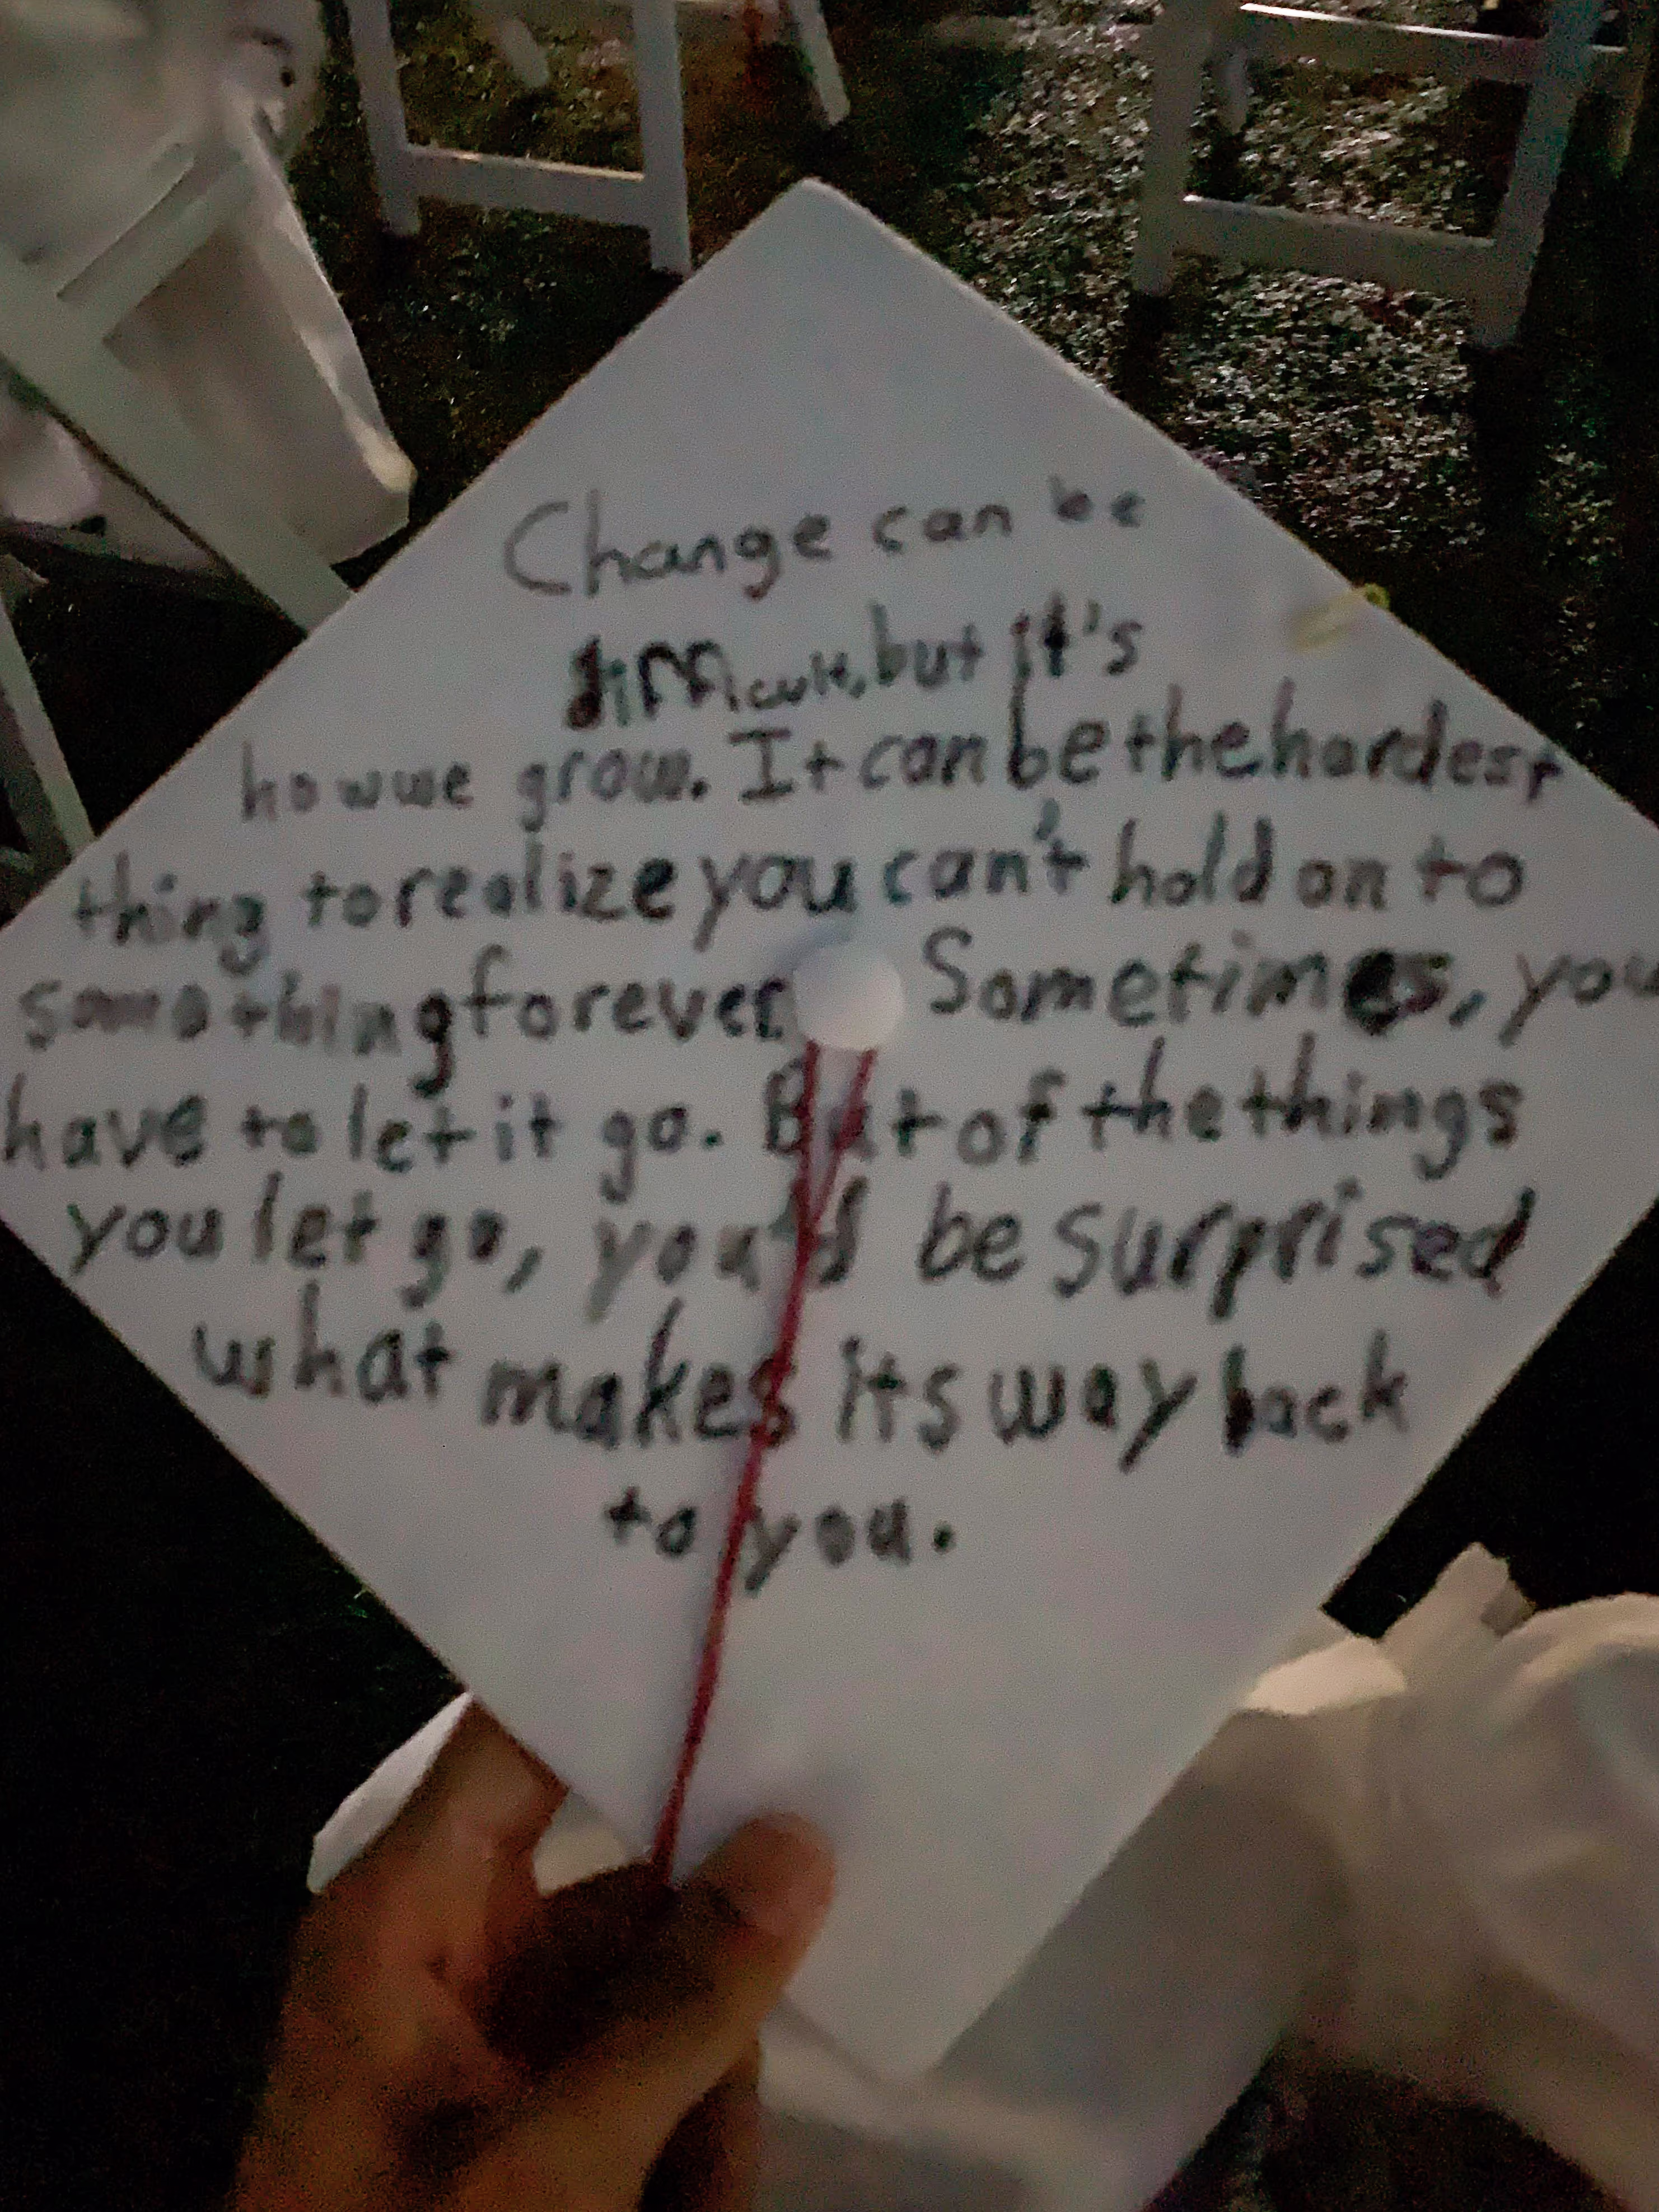 Change can be
difficult, but it's
how we grow. It can be the hardest
thing to realize you can't hold on to
something forever Sometimes, you
have to let it go. But of the things
you let go, you'd be surprised
what makes its way back
to you.